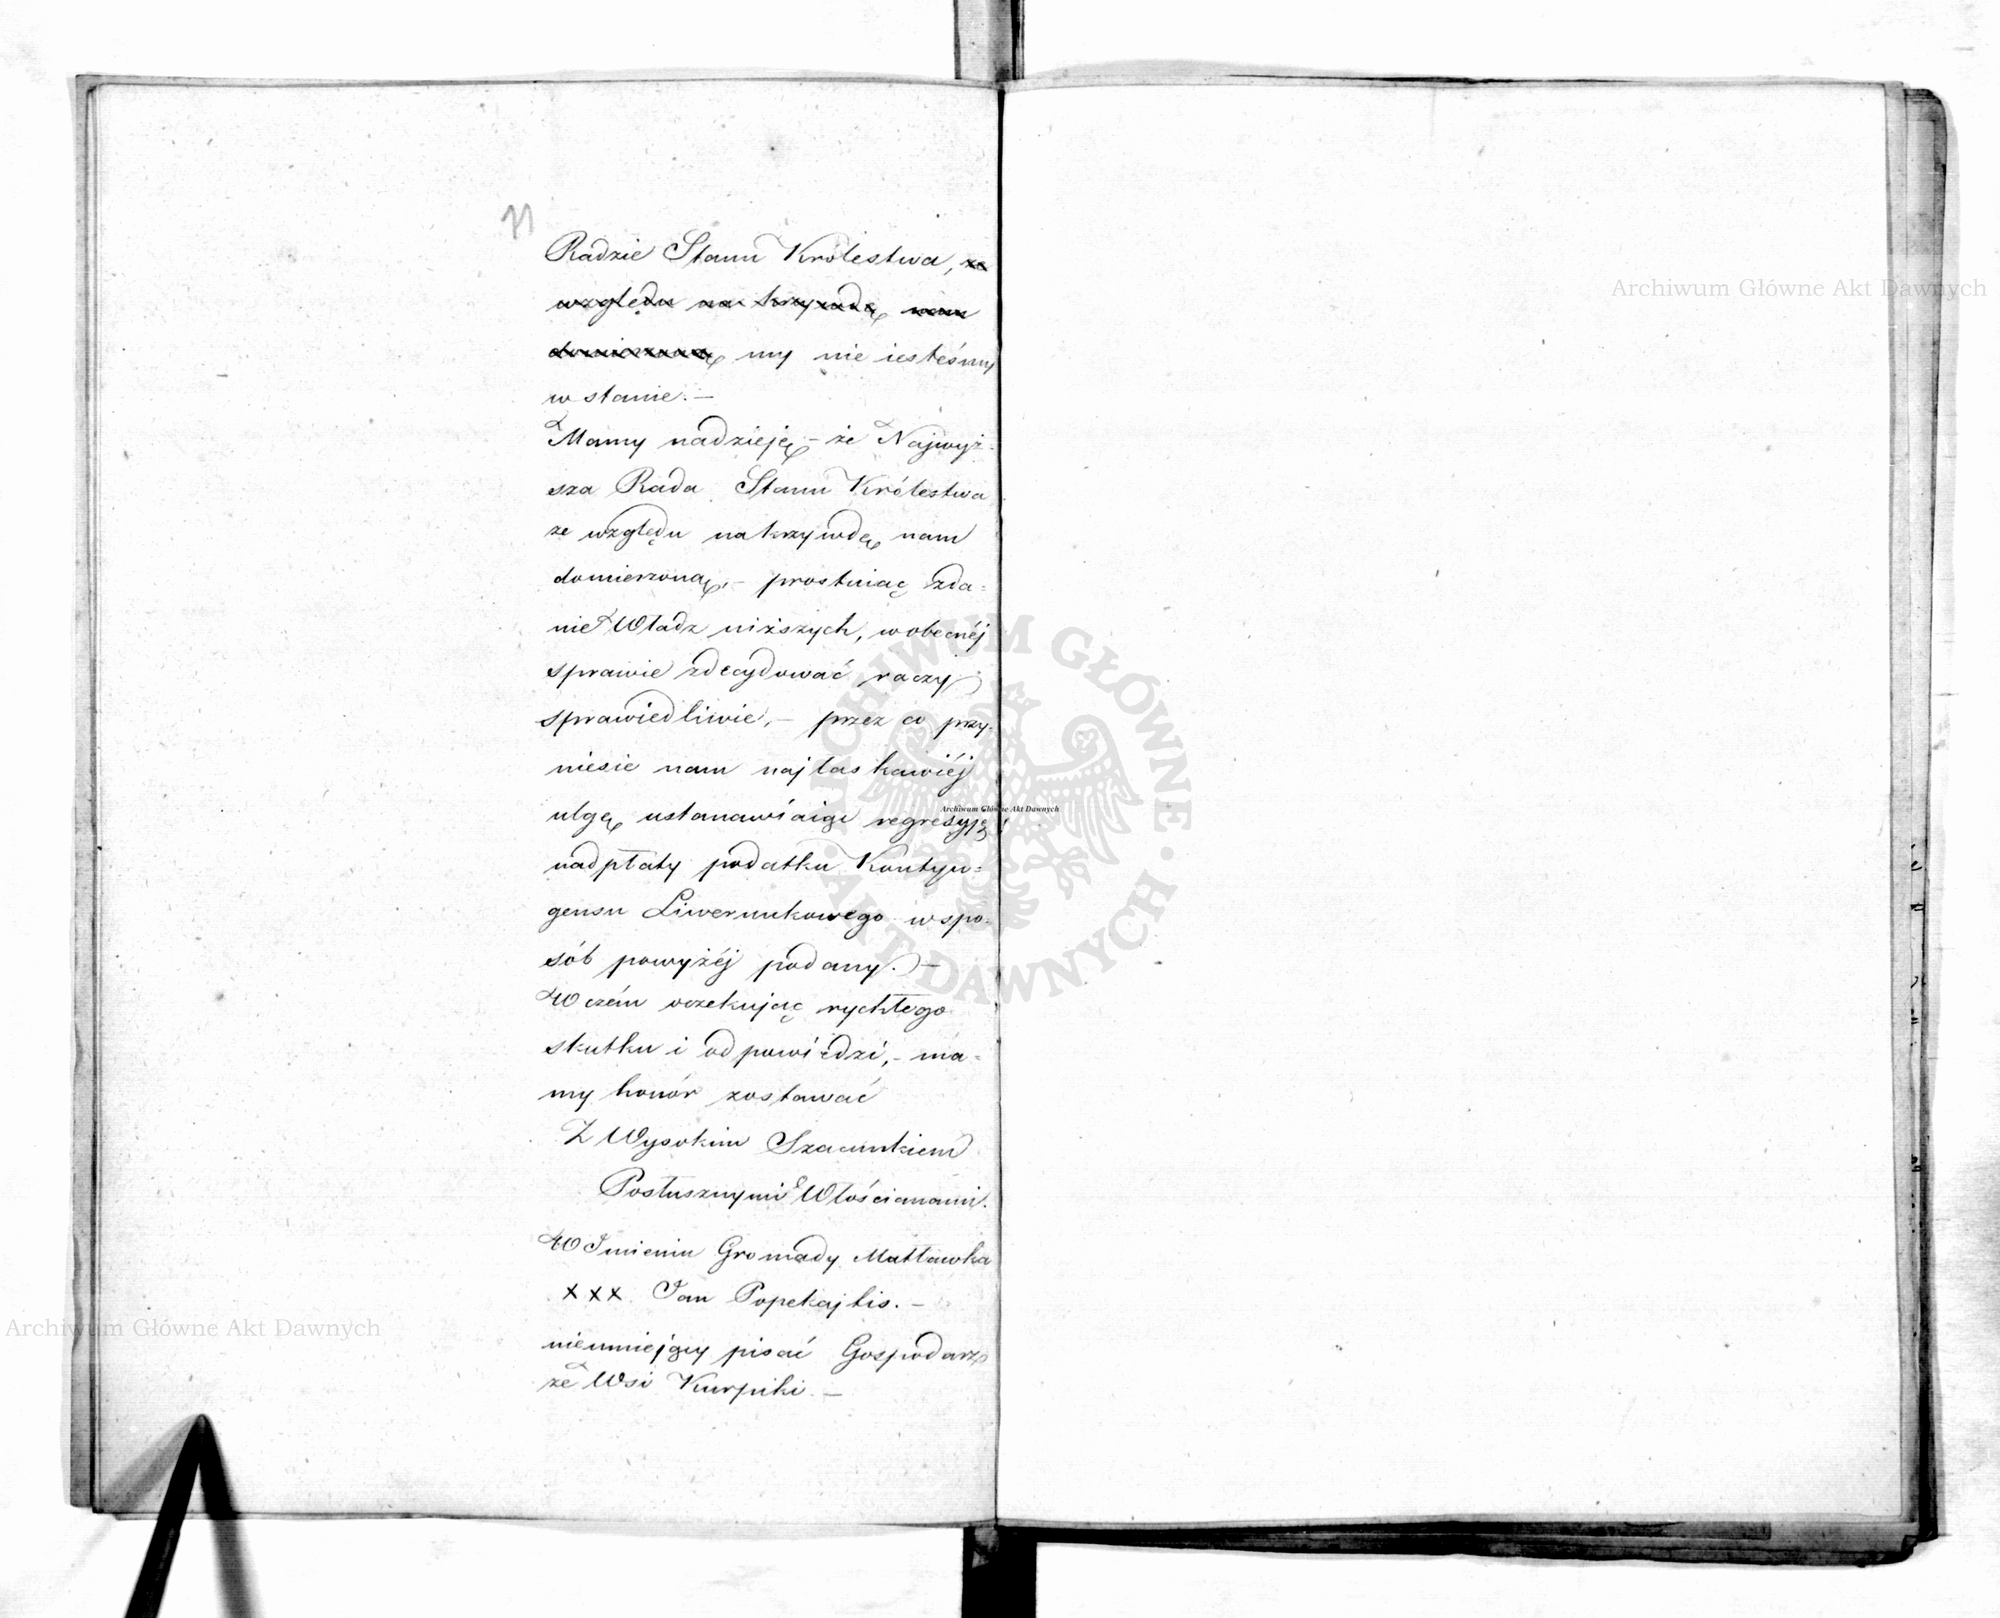 71
Radzie Stanu Królestwa, ze
względu na krzywdę nam
domierzoną my nie iesteśmy
w stanie. —
Mamy nadzieję – że Najwyż-
sza Rada Stanu Królestwa
ze względu na krzywdę nam
domierzoną, – prostuiąc zda=
nie Władz niższych, w obecnéj
sprawie zdecydować raczy
sprawiedliwie, – przez co przy-
niesie nam najłaskawiéj
ulgę, regresyję
nadpłaty podatku Kontyn=
gensu Liwerunkowego w spo-
sób powyżéj podany. —
W czém oczekując rychłego
skutku i odpowiedzi, – ma=
my honór zostawać
Z Wysokim Szacunkiem
Posłusznymi Włościanami.
W Imieniu Gromady Matławka
xxx Jan Popekajtis. —
nieumiejący pisać Gospodarz
ze Wsi Kurpiki. —
Archiwum Główne Akt Dawnych
Archiwum Główne Akt Dawnych
Archiwum Główne Akt Dawnych
ARCHIWUM GŁÓWNE AKT DAWNYCH